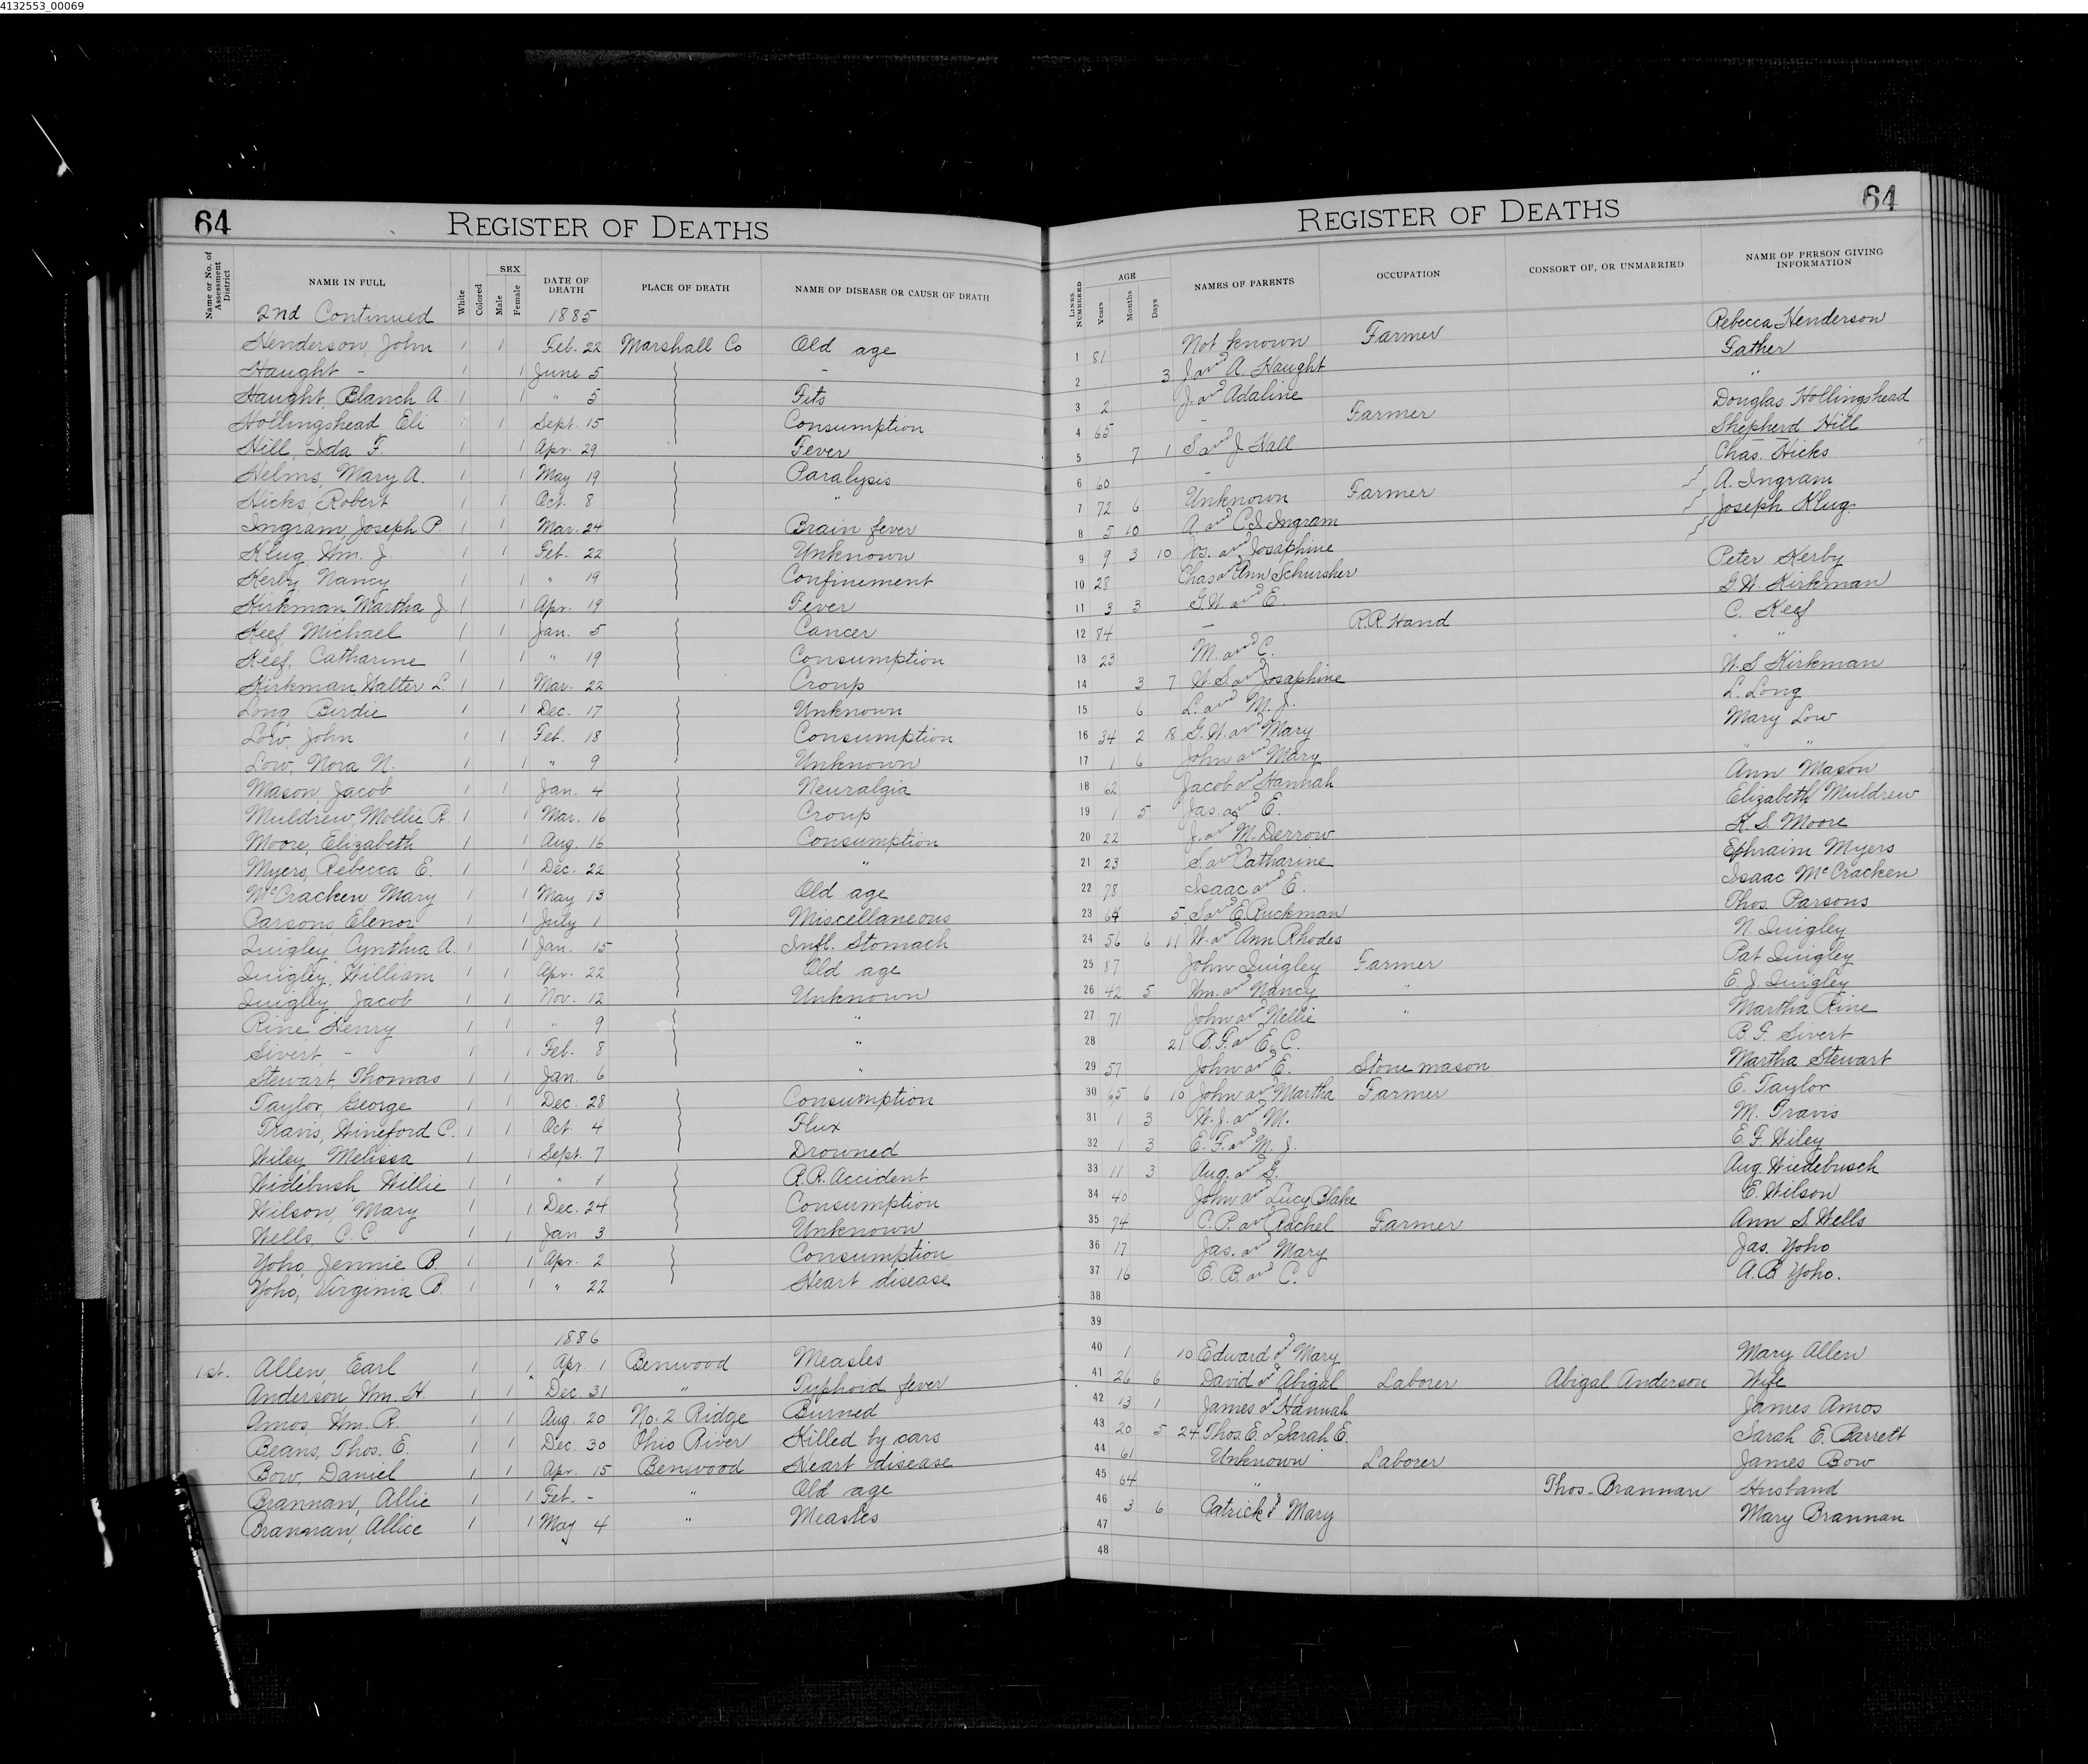 4132553_00069
64 REGISTER OF DEATHS
Name or No. of Assessment District NAME IN FULL White Colored SEX Male Female DATE OF DEATH PLACE OF DEATH NAME OF DISEASE OR CAUSE OF DEATH
2nd Continued 1885
Henderson, John 1 1 Feb. 22 Marshall Co Old age
Haught - 1 1 June 5 -
Haught, Blanch A 1 1 " 5 Fits
Hollingshead, Eli 1 1 Sept. 15 Consumption
Hill, Ida F. 1 1 Apr. 29 Fever
Helms, Mary A. 1 1 May 19 Paralysis
Hicks, Robert 1 1 Oct. 8 "
Ingram, Joseph P. 1 1 Mar. 24 Brain fever
Klug, Wm. J. 1 1 Feb. 22 Unknown
Kerby, Nancy 1 1 " 19 Confinement
Kirkman Martha J 1 1 Apr. 19 Fever
Keef, Michael 1 1 Jan. 5 Cancer
Keef, Catharine 1 1 " 19 Consumption
Kirkman, Walter L. 1 1 Mar. 22 Croup
Long, Birdie 1 1 Dec. 17 Unknown
Low, John 1 1 Feb. 18 Consumption
Low, Nora N. 1 1 " 9 Unknown
Mason, Jacob 1 1 Jan. 4 Neuralgia
Muldrew, Mollie R. 1 1 Mar. 16 Croup
Moore, Elizabeth 1 1 Aug. 16 Consumption
Myers, Rebecca E. 1 1 Dec. 22 "
McCracken, Mary 1 1 May 13 Old age
Parsons, Elenor 1 1 July 1 Miscellaneous
Quigley, Cynthia A. 1 1 Jan. 15 Infl. Stomach
Quigley, William 1 1 Apr. 22 Old age
Quigley, Jacob 1 1 Nov. 12 Unknown
Rine, Henry 1 1 " 9 "
Sivert, - 1 1 Feb. 8 "
Stewart, Thomas 1 1 Jan. 6 "
Taylor, George 1 1 Dec. 28 Consumption
Travis, Wineford C. 1 1 Oct. 4 Flux
Wiley, Melissa 1 1 Sept. 7 Drowned
Widebush, Willie 1 1 " 1 R.R. Accident
Wilson, Mary 1 1 Dec. 24 Consumption
Wells, C. C. 1 1 Jan 3 Unknown
Yoho, Jennie B. 1 1 Apr. 2 Consumption
Yoho, Virginia B. 1 1 " 22 Heart disease
1886
1st. Allen, Earl 1 1 Apr. 1 Benwood Measles
Anderson Wm. H. 1 1 Dec. 31 " Typhoid fever
Amos, Wm. R. 1 1 Aug. 20 No. 2 Ridge Burned
Beans, Thos. E. 1 1 Dec. 30 Ohio River Killed by cars
Bow, Daniel 1 1 Apr. 15 Benwood Heart disease
Brannan, Allie 1 1 Feb. - " Old age
Brannan, Allice 1 1 May 4 " Measles
REGISTER OF DEATHS 64
LINES NUMBERED AGE Years Months Days NAMES OF PARENTS OCCUPATION CONSORT OF, OR UNMARRIED NAME OF PERSON GIVING INFORMATION
1 81 Not known Farmer Rebecca Henderson
2 3 J. and A. Haught Father
3 2 J. and Adaline "
4 65 - Farmer Douglas Hollingshead
5 7 1 S and J Hall Shepherd Hill
6 60 - Chas. Hicks
7 72 6 Unknown Farmer A. Ingram
8 5 10 A and C.S. Ingram Joseph Klug
9 9 3 10 Jos. and Josaphine
10 28 Chas and Ann Schursher Peter Kerby
11 3 3 G.W. and E. G.W. Kirkman
12 84 - R.R. Hand C. Keef
13 23 M. and C. " "
14 3 7 W.S. and Josaphine W.S Kirkman
15 6 L. and M. J. L. Long
16 34 2 18 G.W. and Mary Mary Low
17 1 6 John and Mary " "
18 62 Jacob and Hannah Ann Mason
19 1 5 Jas. and E. Elizabeth Muldrew
20 22 J. and M. Derrow K. S. Moore
21 23 S. and Catharine Ephraim Myers
22 78 Isaac and E. Isaac McCracken
23 64 5 S and E. Ruckman Thos. Parsons
24 56 6 11 W. and Ann Rhodes N. Quigley
25 87 John Quigley Farmer Pat Quigley
26 42 5 Wm. and Nancy " E. J. Quigley
27 71 John and Nellie " Martha Rine
28 21 B. F. and E. C. B. F. Sivert
29 57 John and E. Stone mason Martha Stewart
30 65 6 10 John and Martha Farmer E. Taylor
31 1 3 W. J. and M. M. Travis
32 1 3 E. F. and M. J. E. F. Wiley
33 11 3 Aug. and G. Aug. Wiedebusch
34 40 John and Lucy Blake E. Wilson
35 74 C. P. and Rachel Farmer Ann S. Wells
36 17 Jas. and Mary Jas. Yoho
37 16 E. B. and C. A. B. Yoho.
38
39
40 1 10 Edward & Mary Mary Allen
41 26 6 David & Abigal Laborer Abigal Anderson Wife
42 13 1 James & Hannah James Amos
43 20 5 24 Thos. E. & Sarah E. Sarah E. Barrett
44 61 Unknown Laborer James Bow
45 64 " Thos. Brannan Husband
46 3 6 Patrick & Mary Mary Brannan
47
48